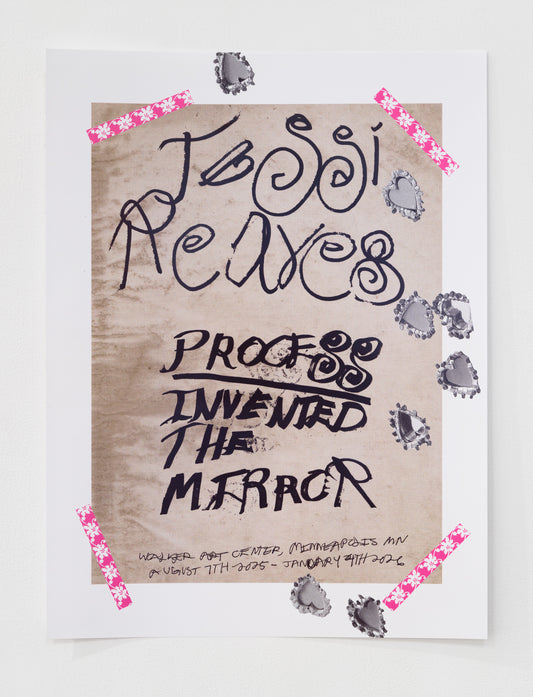 Jessi
Reaves
PROCESS
INVENTED
THE
MIRROR
WALKER ART CENTER, MINNEAPOLIS MN
AUGUST 7TH-2025-JANUARY 4TH 2026